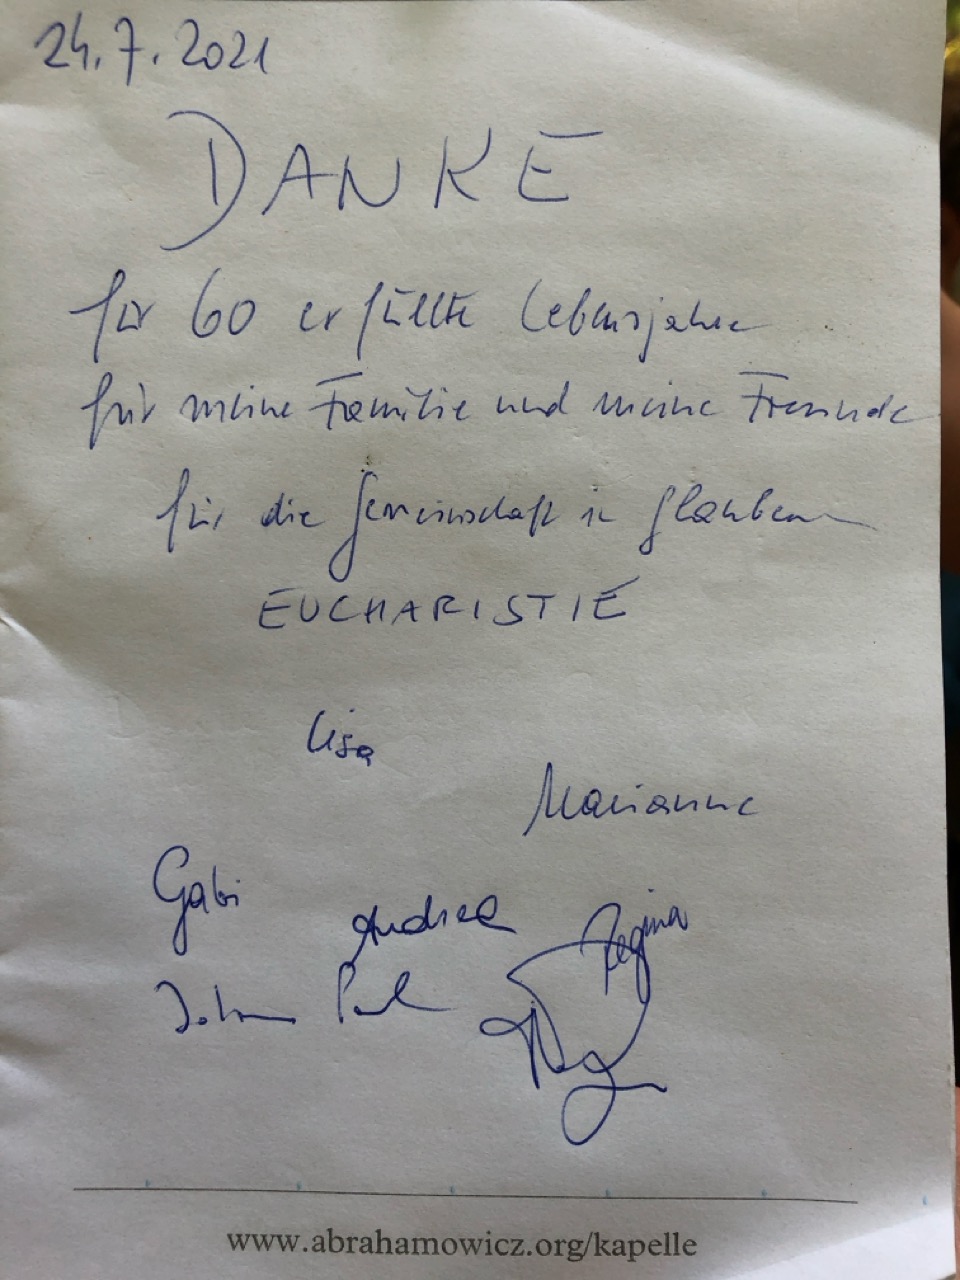 24.7.2021
DANKE
für 60 erfüllte Lebensjahre
für meine Familie und meine Freunde
für die Gemeinschaft in Glauben
EUCHARISTIE
Lisa
Marianne
Gabi Andrea Regina
Johann Paul
www.abrahamowicz.org/kapelle